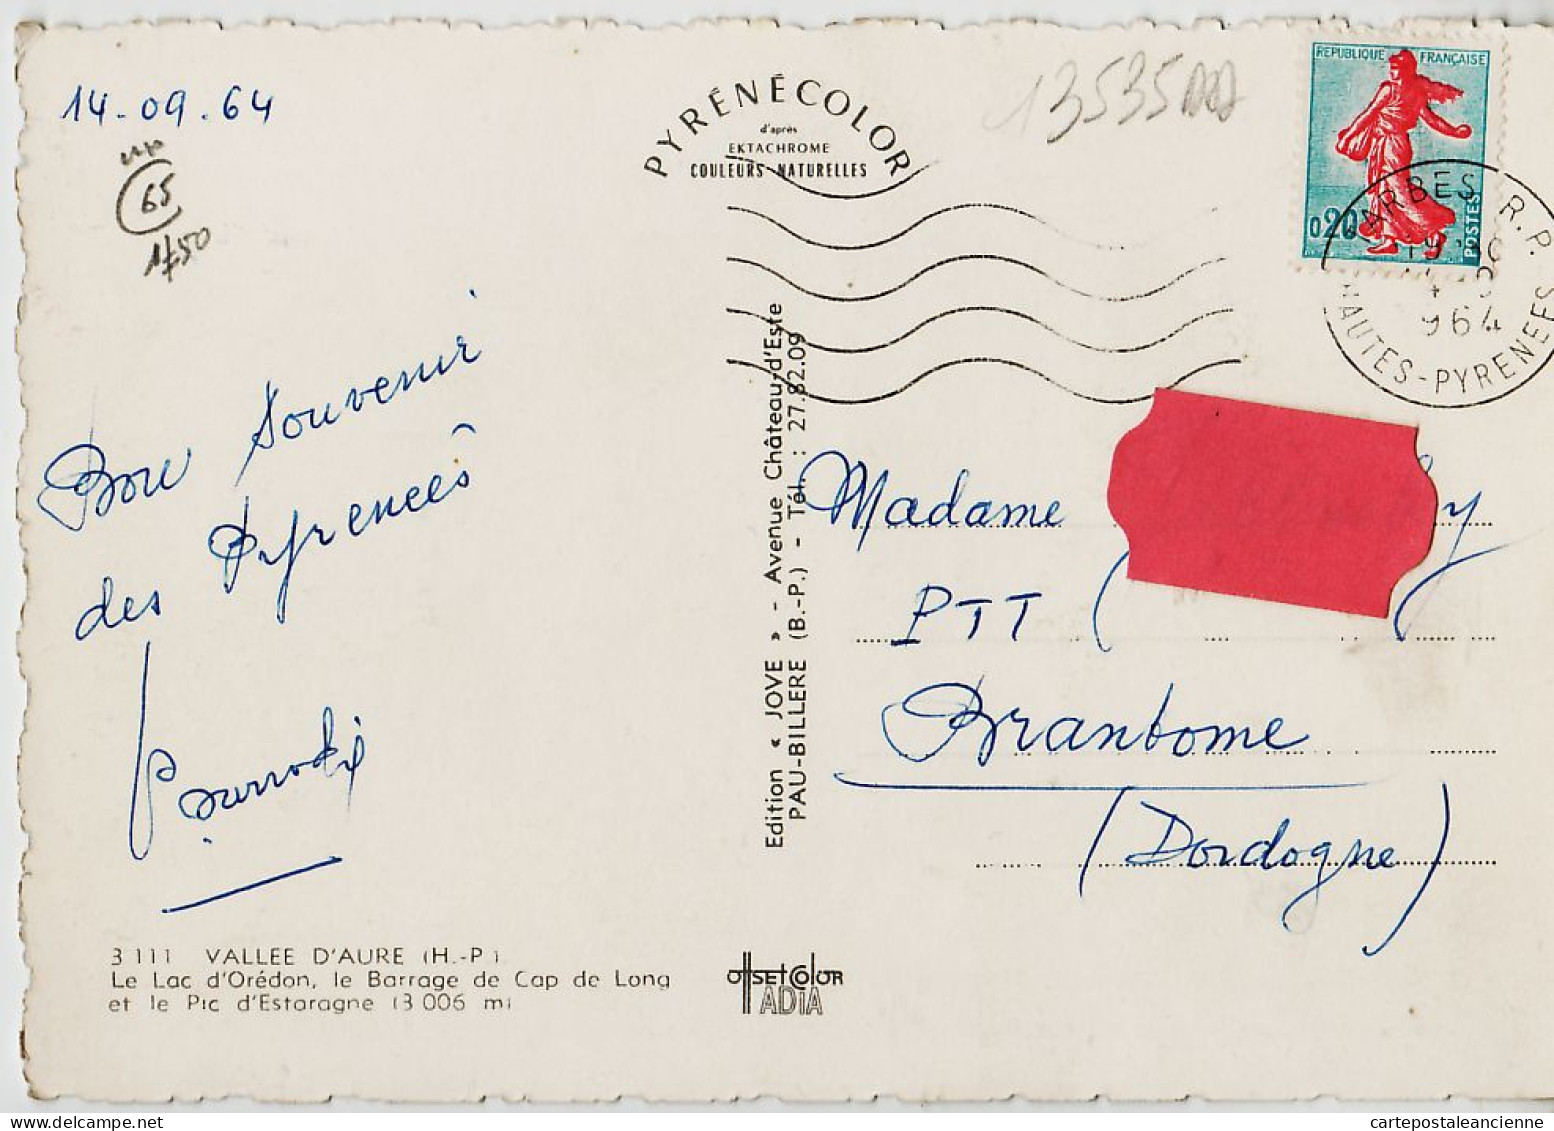 14-09.64
65
1f50
Bon souvenir
des Pyrenées
PYRÉNÉCOLOR
d'après
EKTACHROME
COULEURS NATURELLES
13535
REPUBLIQUE FRANÇAISE
0,20
POSTES
TARBES R.P.
964
HAUTES-PYRENEES
Edition « JOVE » - Avenue Château-d'Este
PAU-BILLERE (B.-P.) - Tél. : 27.82.09
Madame
PTT
Brantome
(Dordogne)
3 111 VALLEE D'AURE (H.-P.)
Le Lac d'Orédon, le Barrage de Cap de Long
et le Pic d'Estaragne (3 006 m)
OFFSET COLOR
ADIA
cartepostaleancienne